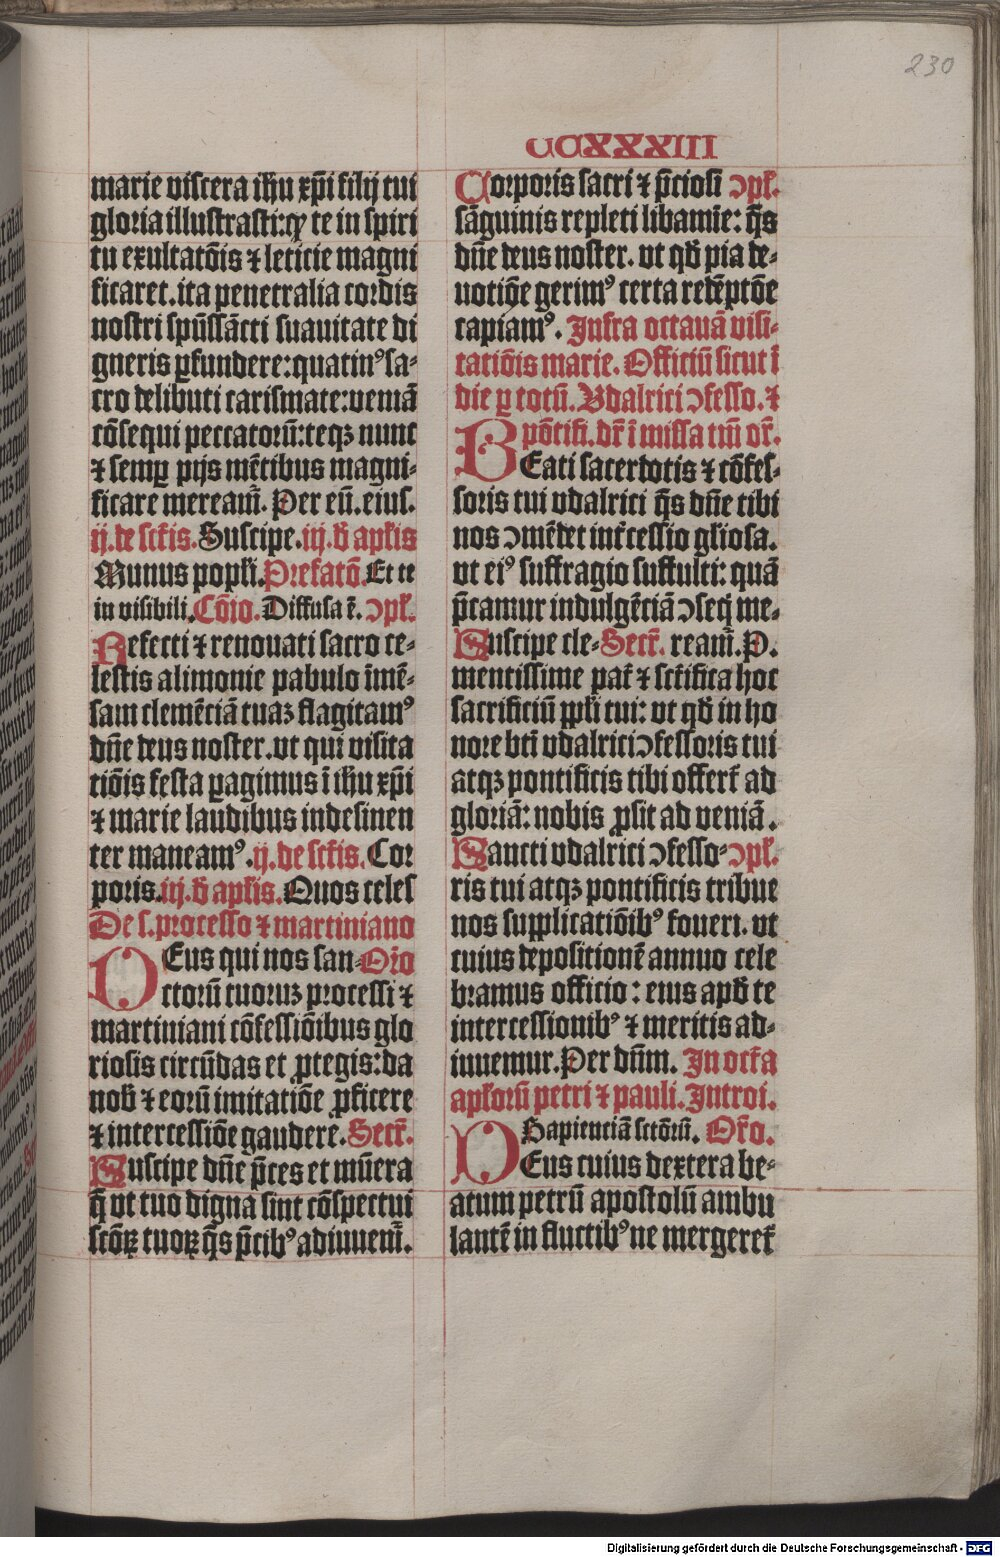 230
CCXXXIII
marie viscera ihũ xp̃i filij tui
gloria illustrasti: ꝙ te in spiri
tu exultatõis ⁊ leticie magni
ficaret. ita penetralia cordis
nostri spũssãcti suauitate di
gneris ꝑfundere: quatinꝰ sa-
cro delibuti carismate: veniã
cõsequi peccatorũ: teqꝫ nunc
⁊ semꝑ pijs mẽtibus magni-
ficare meream̃. Per eũ. eius.
ij. de sctĩs. Suscipe. iij. ð apłis
Munus popłi. Prefatõ. Et te
in visibili. Cõio. Diffusa ẽ. ↄpł.
Refecti ⁊ renouati sacro ce-
lestis alimonie pabulo im̃ẽ-
sam clemẽciã tuaꝫ flagitamꝰ
dñe deus noster. vt qui visita
tiõis festa ꝑagimus ĩ ihũ xp̃i
⁊ marie laudibus indesinen
ter maneamꝰ. ij. de sctĩs. Cor
poris. iij. ð apłis. Quos celes
De s. processo ⁊ martiniano
DEus qui nos san- Oro
ctorũ tuoruꝫ processi ⁊
martiniani cõfessiõibus glo
riosis circũdas et ꝓtegis: da
nob̃ ⁊ eorũ imitatiõe ꝓficere
⁊ intercessiõe gaudere. Secr̃.
Suscipe dñe p̃ces et mũera
q̃ vt tuo digna sint cõspectui
sctõꝝ tuoꝝ q̃s p̃cibꝰ adiuuem̃.
Corporis sacri ⁊ p̃ciosi ↄpł.
sãguinis repleti libamĩe: q̃s
dñe deus noster. vt qð pia de-
uotiõe gerimꝰ certa redẽptõe
capiamꝰ. Infra octauã visi-
tatiõis marie. Officiũ sicut ĩ
die ꝑ totũ. Vdalrici ↄfesso. ⁊
põtifi. dr̃ ĩ missa tm̃ or̃.
BEati sacerdotis ⁊ cõfes-
soris tui vdalrici q̃s dñe tibi
nos ↄmẽdet int̃cessio gliosa.
vt eiꝰ suffragio suffulti: quã
p̃camur indulgẽciã ↄseq̃ me-
Suscipe cle- Secr̃. ream̃. P.
mentissime pat̃ ⁊ sctĩfica hoc
sacrificiũ ppłi tui: vt qð in ho
nore bti vdalrici ↄfessoris tui
atqꝫ pontificis tibi offert̃ ad
gloriã: nobis ꝓsit ad veniã.
Sancti vdalrici ↄfesso- ↄpł.
ris tui atqꝫ pontificis tribue
nos supplicatiõibꝰ foueri. vt
cuius depositionẽ annuo cele
bramus officio: eius apð te
intercessionibꝰ ⁊ meritis ad-
iuuemur. Per dñm. In octa
apłorũ petri ⁊ pauli. Introi.
Sapienciã sctõrũ. Oro.
DEus cuius dextera be-
atum petrũ apostolũ ambu
lantẽ in fluctibꝰ ne mergeret̃
Digitalisierung gefördert durch die Deutsche Forschungsgemeinschaft - DFG